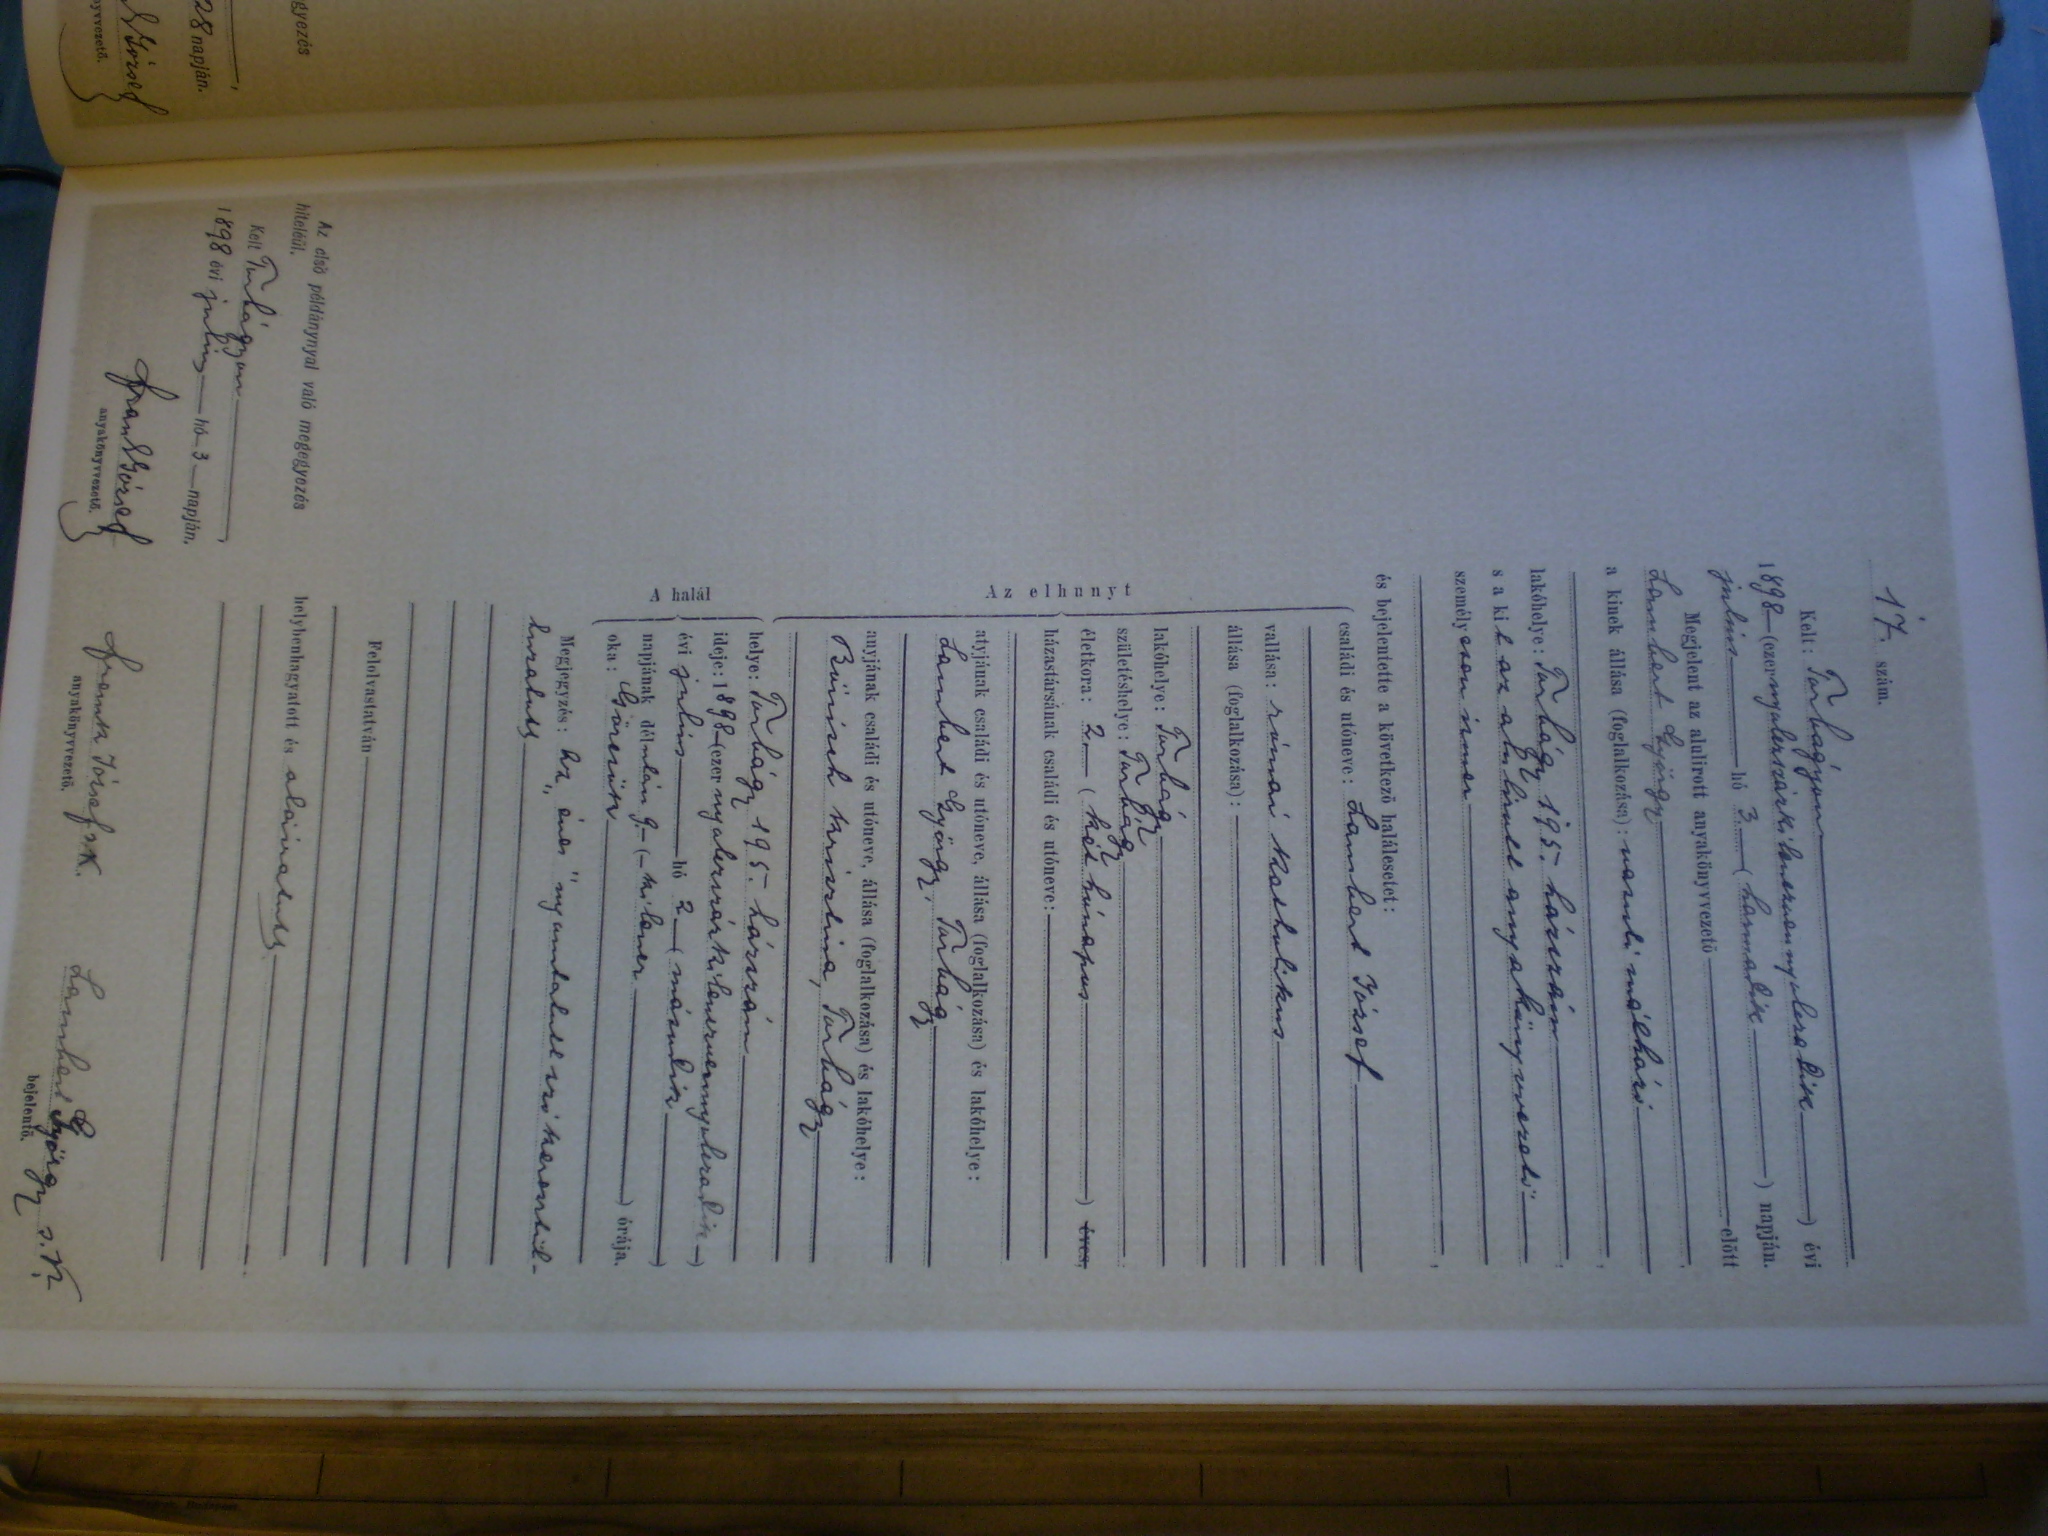 17. szám.
Kelt: Turhágyon
1898 (ezernyolczszázkilenczvennyolczadik) évi
julius hó 3 (harmadik) napján.
Megjelent az alulirott anyakönyvvezető előtt
Lambert György,
a kinek állása (foglakozása): vasuti
lakóhelye: Turhágy 195. házszám
s a kit az alulirott anyakönyvvezető
személyesen ismer
és bejelentette a következő halálesetet:
Az elhunyt
családi és utóneve: Lambert József
vallása: római katholikus
állása (foglalkozása):
lakóhelye: Turhágy
születéshelye: Turhágy
életkora: 2 (két hónapos) éves,
házastársának családi és utóneve:
atyjának családi és utóneve, állása (foglalkozása) és lakóhelye:
Lambert György, Turhágy
anyjának családi és utóneve, állása (foglalkozása) és lakóhelye:
Krisztina, Turhágy
A halál
helye: Turhágy 195. házszám
ideje: 1898 (ezernyolczszázkilenczvennyolczadik)
évi julius hó 2 (második)
napjának délután 9 (kilencz) órája.
oka: Görcsök
Megjegyzés: Az „éves" nyomtatott szó keresztül-
huzatott
Felolvastatván
helybenhagyatott és aláiratott
Frank József s.k.
anyakönyvvezető.
Lambert György s. k.
bejelentő.
Az első példánynyal való megegyezés
hiteléül.
Kelt Turhágyon,
1898 évi julius hó 3 napján.
Frank József
anyakönyvvezető.
gyezés
28 napján.
József
yvvezető.